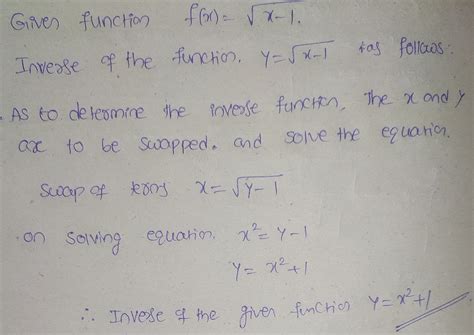 Given function f(x) = √x-1.
Inverse of the function. y = √x-1 as follows:
As to determine the inverse function, The x and y
are to be swapped. and solve the equation.
swap of terms x = √y-1
on solving equation. x² = y-1
y = x²+1
∴ Inverse of the given function y = x²+1